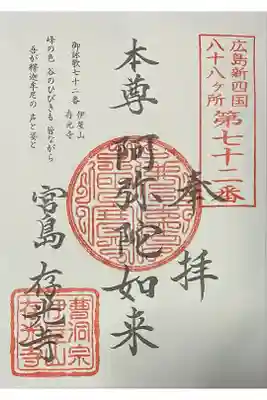 広島新四国
八十八ヶ所 第七十二番
奉拝
本尊 阿弥陀如来
御詠歌七十二番 伊葉山
存光寺
峰の色 谷のひびきも 皆ながら
吾が釋迦牟尼の 声と姿と
宮島 存光寺
曹洞宗